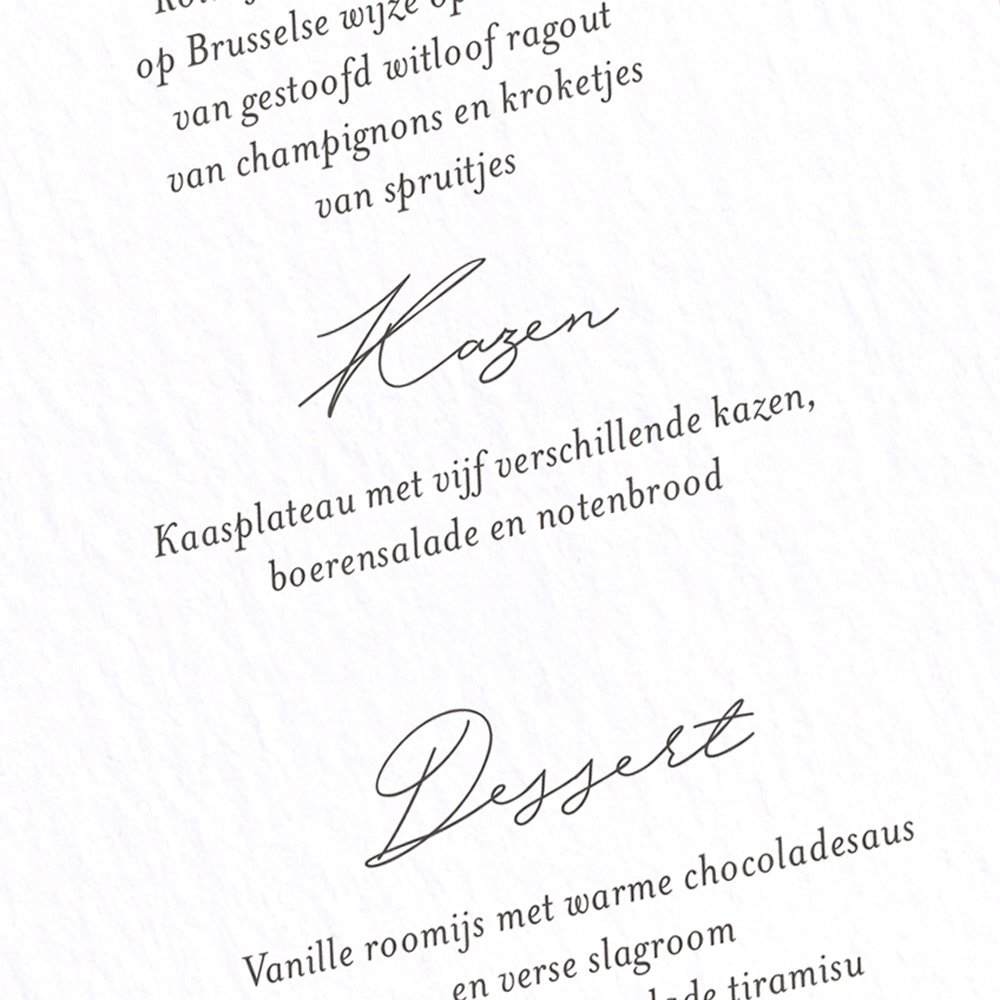 op Brusselse wijze
van gestoofd witloof ragout
van champignons en kroketjes
van spruitjes
Kazen
Kaasplateau met vijf verschillende kazen,
boerensalade en notenbrood
Dessert
Vanille roomijs met warme chocoladesaus
en verse slagroom
tiramisu